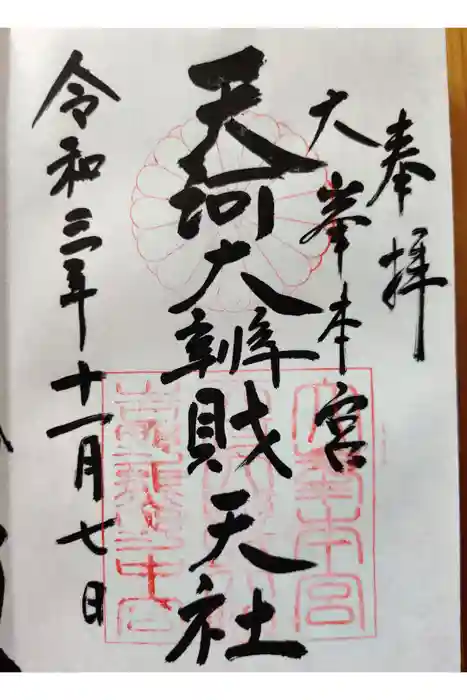 奉拝
大峯本宮
天河大辨財天社
令和三年十一月七日